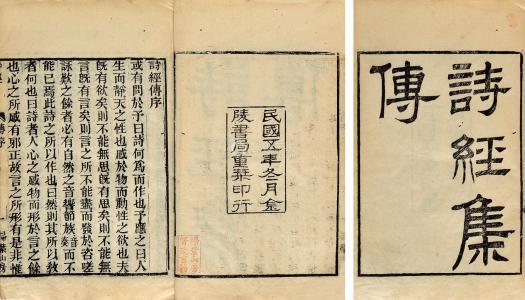 詩經集
傳
民國五年冬月金
陵書局重槧印行
詩經傳序
或有問於予曰詩何爲而作也予應之曰人
生而靜天之性也感於物而動性之欲也夫
既有欲矣則不能無思既有思矣則不能無
言既有言矣則言之所不能盡而發於咨嗟
詠歎之餘者必有自然之音響節族音奏而不
能已焉此詩之所以作也曰然則其所以教
者何也曰詩者人心之感物而形於言之餘
也心之所感有邪正故言之所形有是非惟